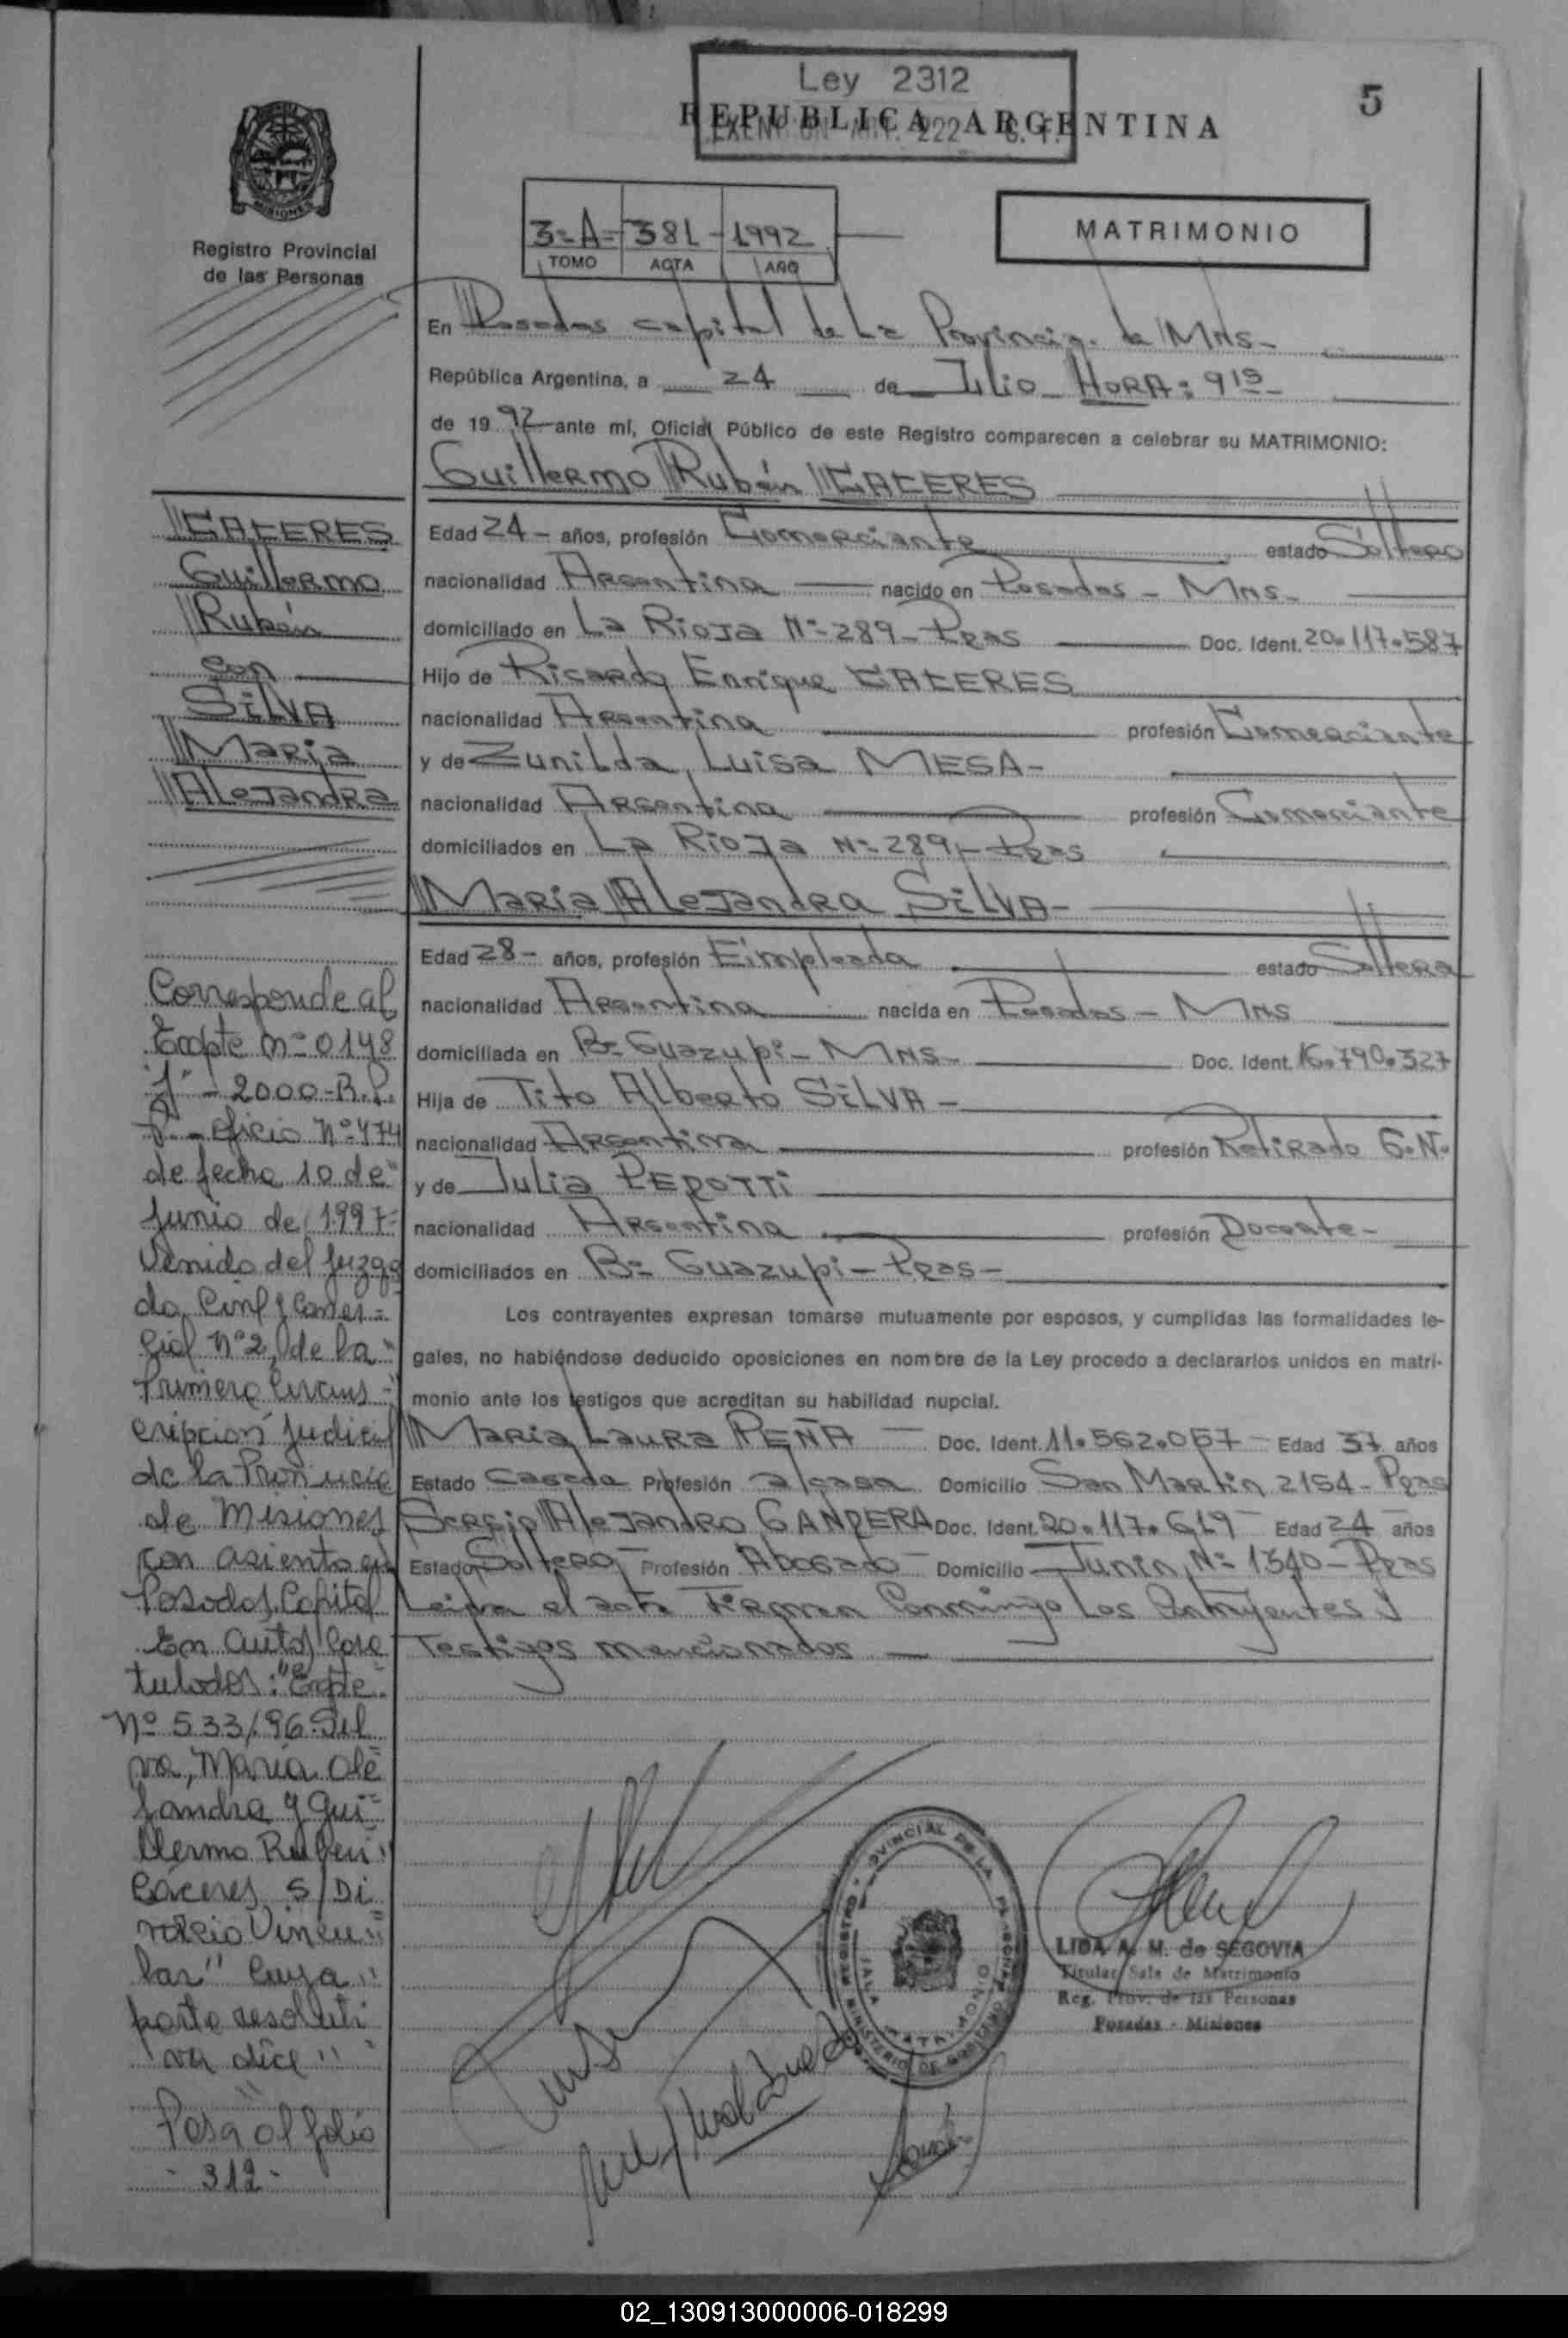 Ley 2312
5
REPUBLICA ARGENTINA
EXENT ART. 222
MISIONES
Registro Provincial
de las Personas
3-A- 381- 1992
TOMO ACTA AÑO
MATRIMONIO
En Posadas capital de La Provincia de MNS-
República Argentina, a 24 de Julio HORA: 9 15
de 1992 ante mí, Oficial Público de este Registro comparecen a celebrar su MATRIMONIO:
Guillermo Rubén CACERES
Edad 24- años, profesión Comerciante estado Soltero
nacionalidad Argentina nacido en Posadas - MNS-
domiciliado en La Rioja Nº 289- Pdas Doc. Ident. 20.117.587
Hijo de Ricardo Enrique CACERES
nacionalidad Argentina profesión Comerciante
y de Zunilda Luisa MESA-
nacionalidad Argentina profesión Comerciante
domiciliados en La Rioja Nº 289- Pdas
Maria Alejandra SILVA-
Edad 28- años, profesión Empleada estado Soltera
nacionalidad Argentina nacida en Posadas - MNS
domiciliada en Bº Guazupi- MNS- Doc. Ident. 16.790.327
Hija de Tito Alberto SILVA-
nacionalidad Argentina profesión Retirado G.N.
y de Julia PEROTTI
nacionalidad Argentina profesión Docente-
domiciliados en Bº Guazupi- Pdas-
Los contrayentes expresan tomarse mutuamente por esposos, y cumplidas las formalidades le-
gales, no habiéndose deducido oposiciones en nombre de la Ley procedo a declararlos unidos en matri-
monio ante los testigos que acreditan su habilidad nupcial.
Maria Laura PEÑA Doc. Ident. 11.562.057 Edad 37 años
Estado Casada Profesión a/casa Domicilio San Martin 2154- Pdas
Sergio Alejandro GANDERA Doc. Ident. 20.117.619 Edad 24 años
Estado Soltero Profesión Abogado Domicilio Junin Nº 1340- Pdas
Leida el acta Firman Conmigo Los Contrayentes y
Testigos mencionados
CACERES
Guillermo
Rubén
con
SILVA
Maria
Alejandra
Corresponde al
Expte nº 0148
2000-R.P.
P.- Oficio Nº 474
de fecha 10 de
Junio de 1997-
Venido del Juzga
do Civil y Comer=
cial Nº 2, de la
Primera Circuns-
cripcion Judicial
de la Provincia
de Misiones
con asiento en
Posadas, Capital
En autos Cara
tulados: "Expte
Nº 533/96. Sil
va, María Ale
jandra y Gui
llermo Ruben
Cáceres S/Di
vorcio Vincu
lar" Cuya
parte resoluti
va dice"
Pasa al folio
- 312 -
REGISTRO PROVINCIAL DE LAS PERSONAS
SALA MATRIMONIO
MINISTERIO DE GOBIERNO
LIDA A. M. de SEGOVIA
Titular Sala de Matrimonio
Reg. Prov. de las Personas
Posadas - Misiones
02_130913000006-018299